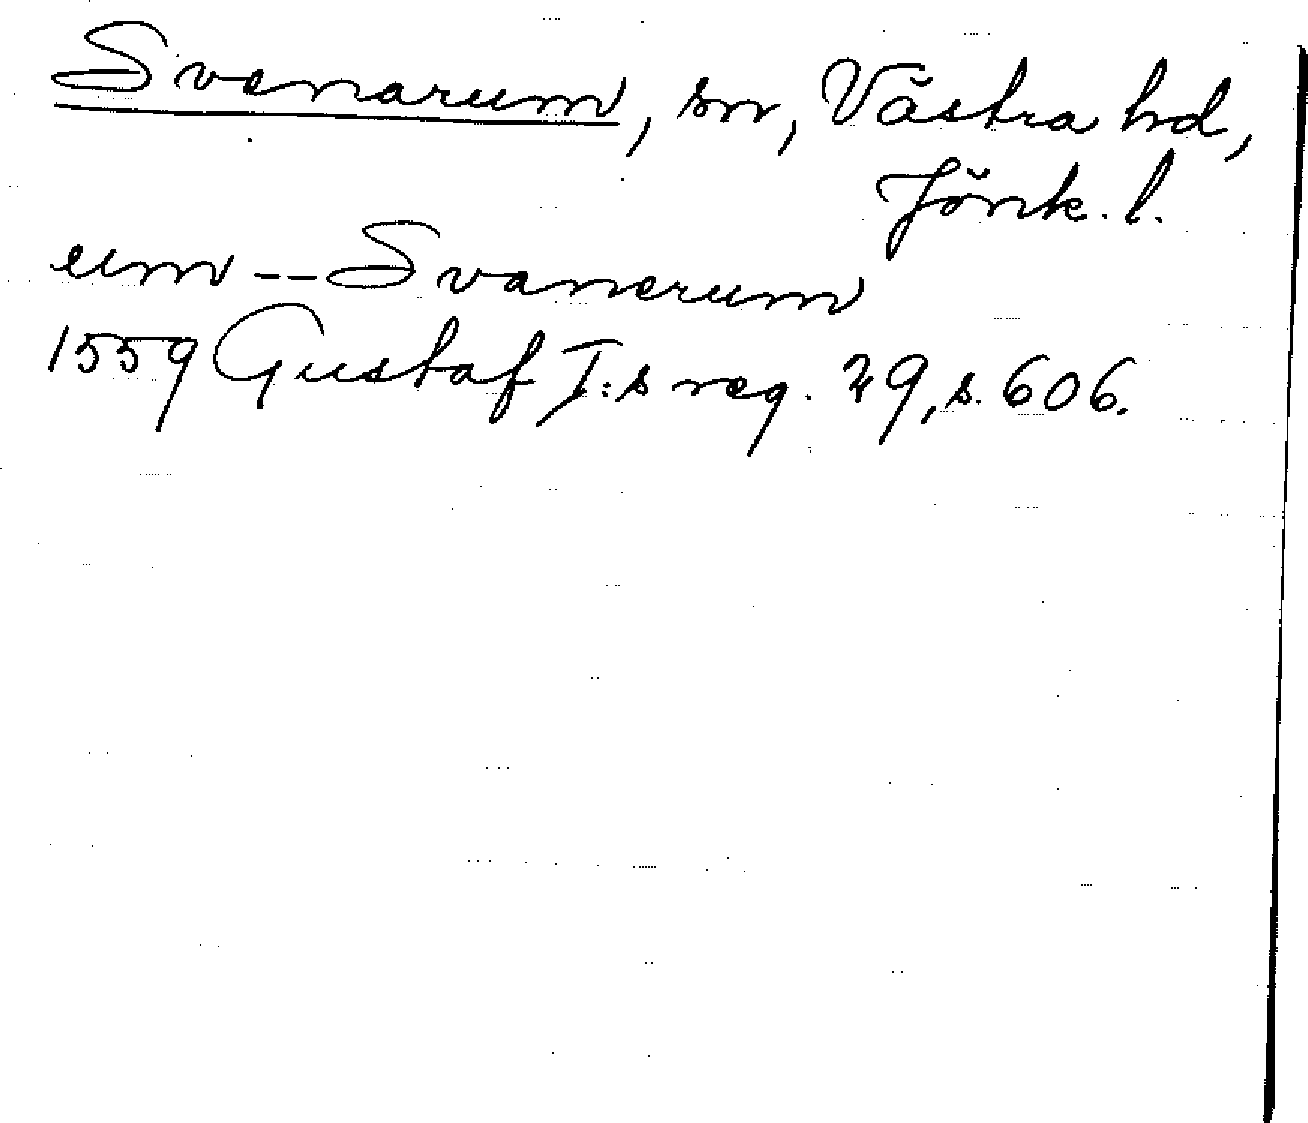 Svenarum, sn, Västra hd,
Jönk. l.
um -- Svanerum
1559 Gustaf I:s reg. 29, s. 606.